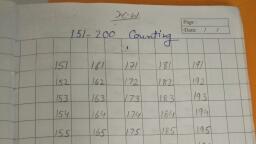 H.W
Page:
Date: / /
151-200 Counting
151 161 171 181 191
152 162 172 182 192
153 163 173 183 193
154 164 174 184 194
155 165 175 185 195